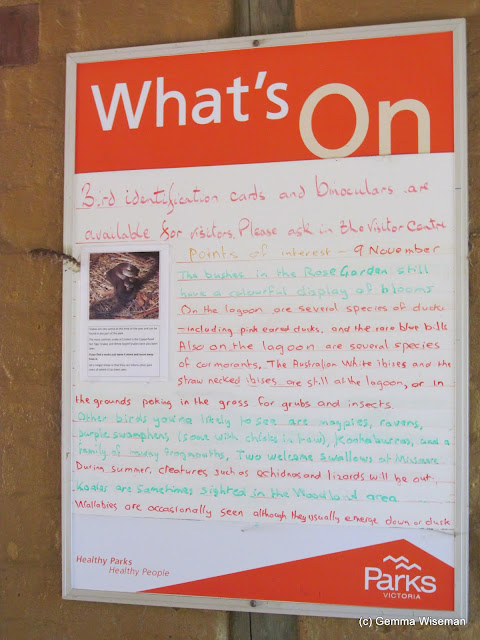 What's On
Bird identification cards and binoculars are
available for visitors. Please ask in the Visitor Centre
Points of interest - 9 November
The bushes in the Rose Garden still
have a colourful display of blooms
On the lagoon are several species of ducks
- including pink eared ducks, and the rare blue bills
Also on the lagoon are several species
of cormorants. The Australian White ibises and the
straw necked ibises are still at the lagoon, or in
the grounds poking in the grass for grubs and insects.
Other birds you're likely to see are magpies, ravens,
purple swamphens, (some with chicks in tow), Kookaburras, and a
family of tawny frogmouths, Two welcome swallows at
During summer, creatures such as echidnas and lizards will be out,
Koalas are sometimes sighted in the Woodland area
Wallabies are occasionally seen although they usually emerge dawn or dusk
Healthy Parks
Healthy People
Parks
VICTORIA
(c) Gemma Wiseman